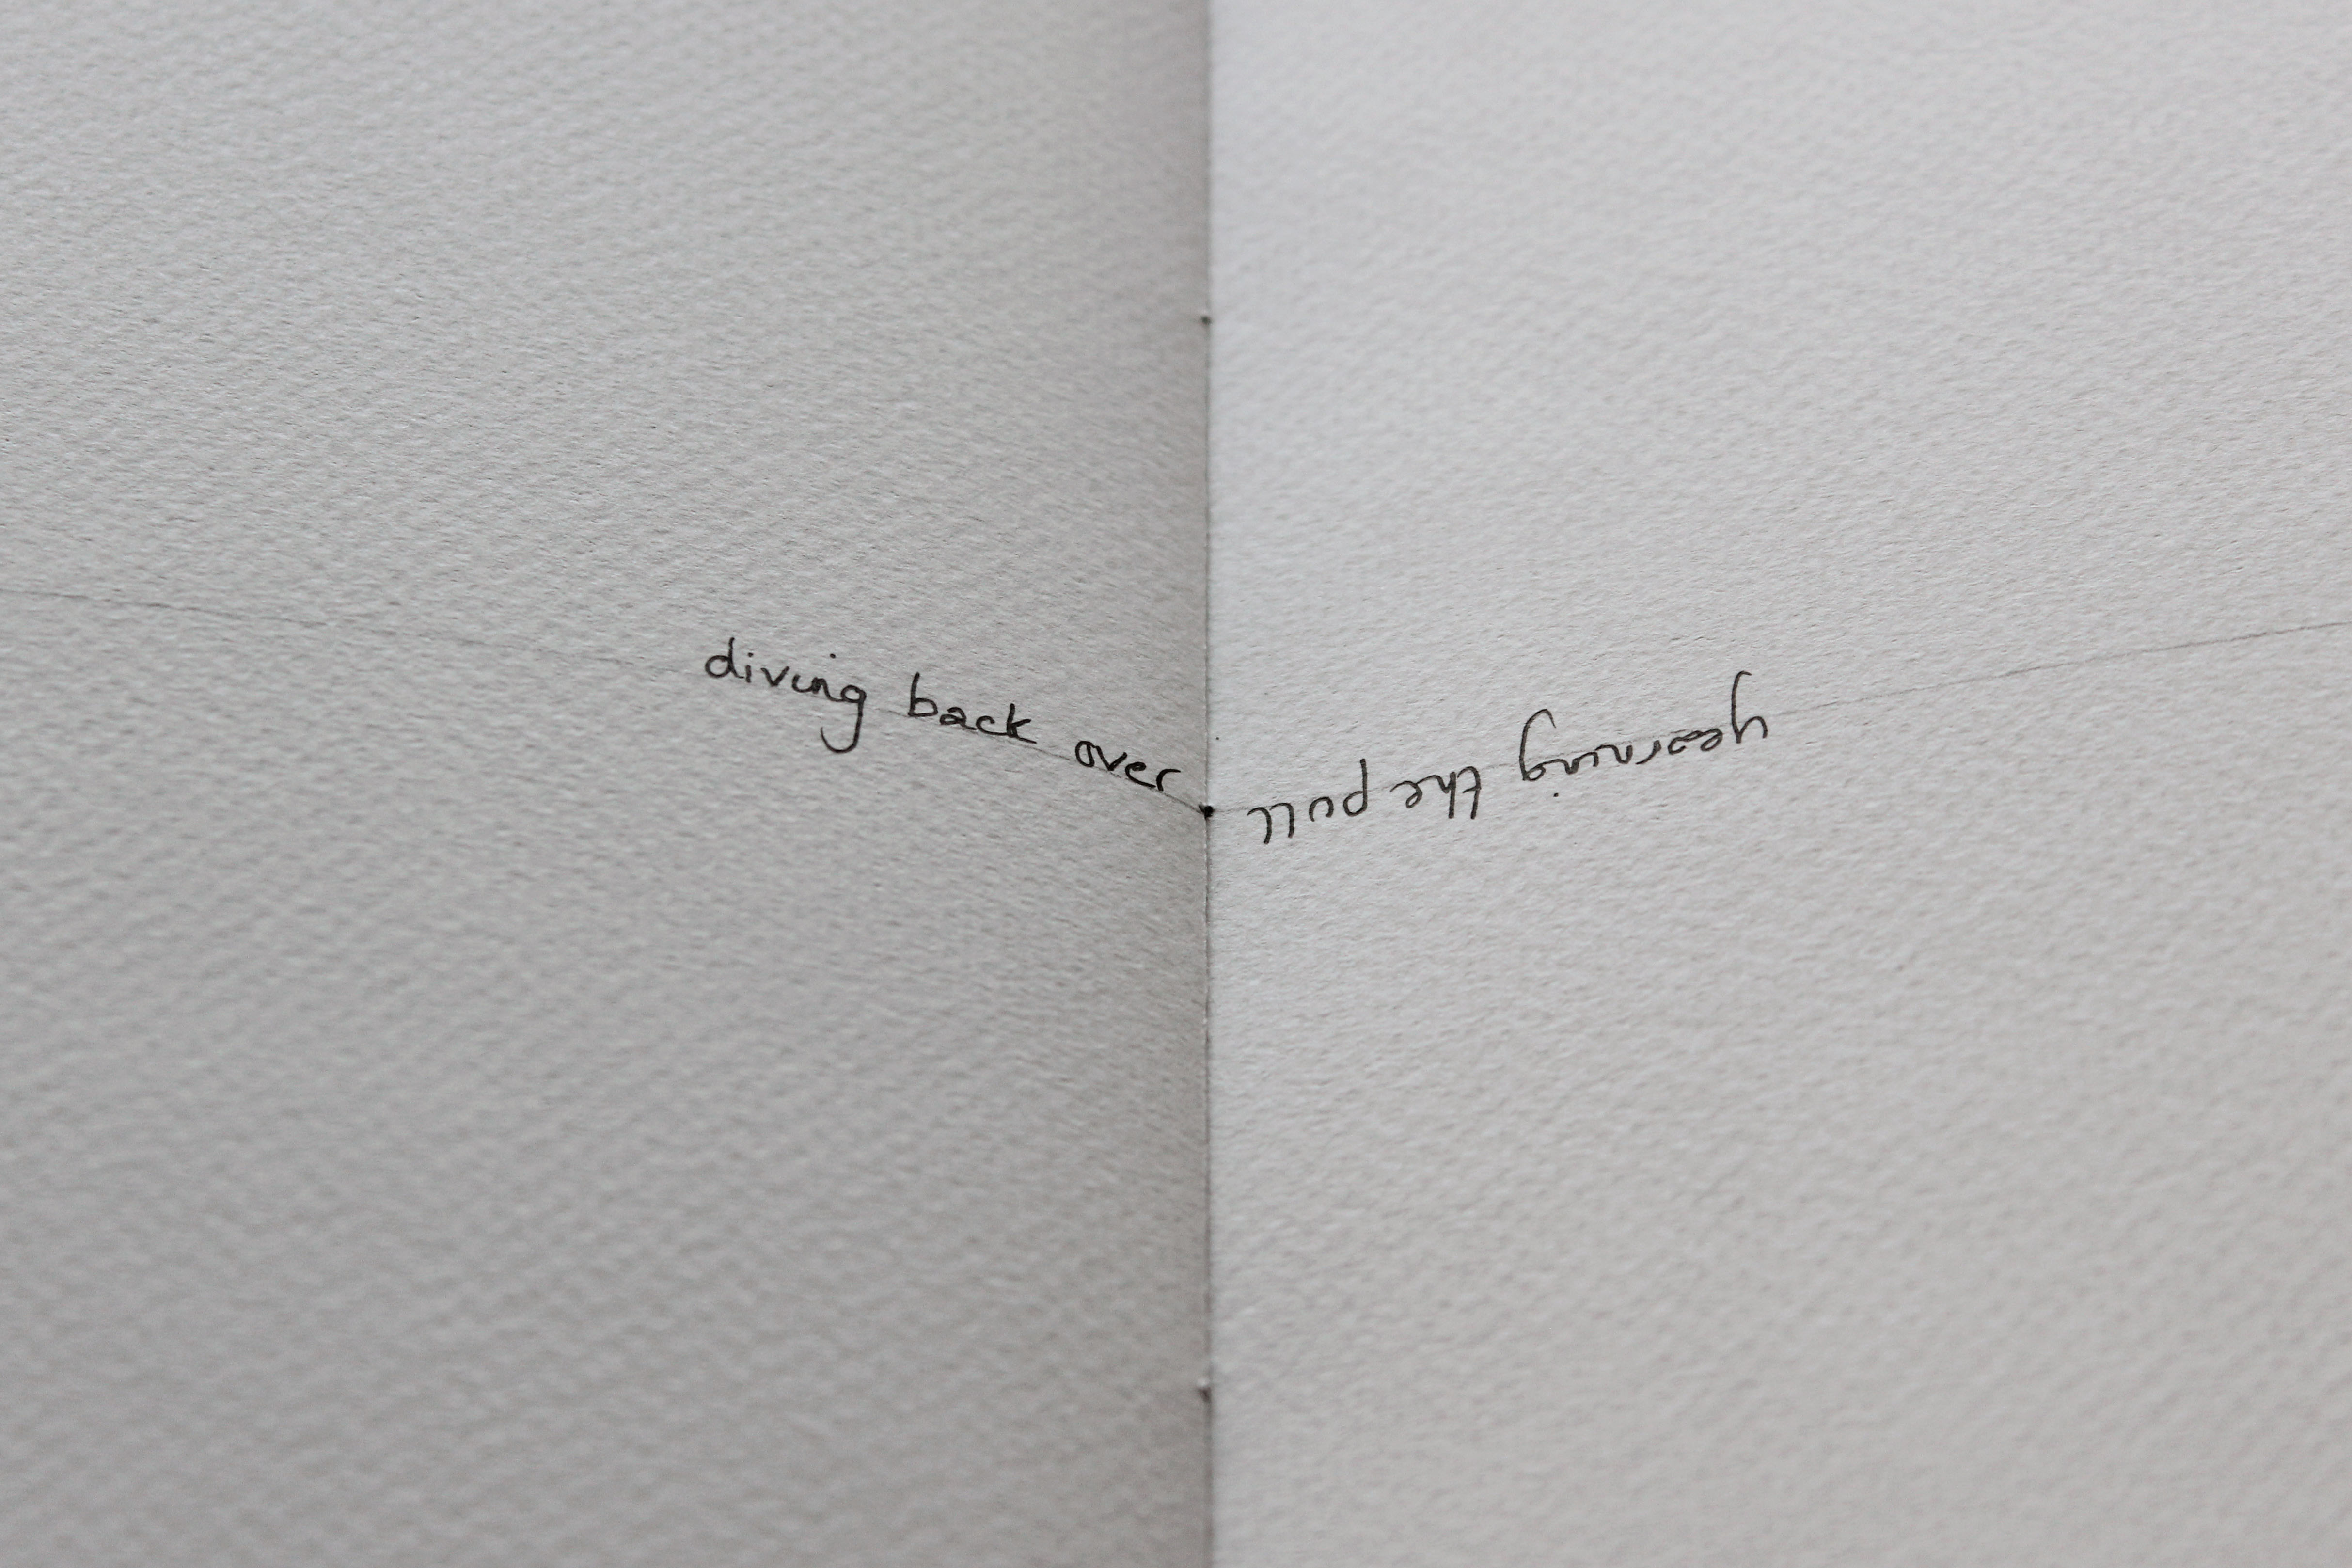 diving back over
yearning the pull